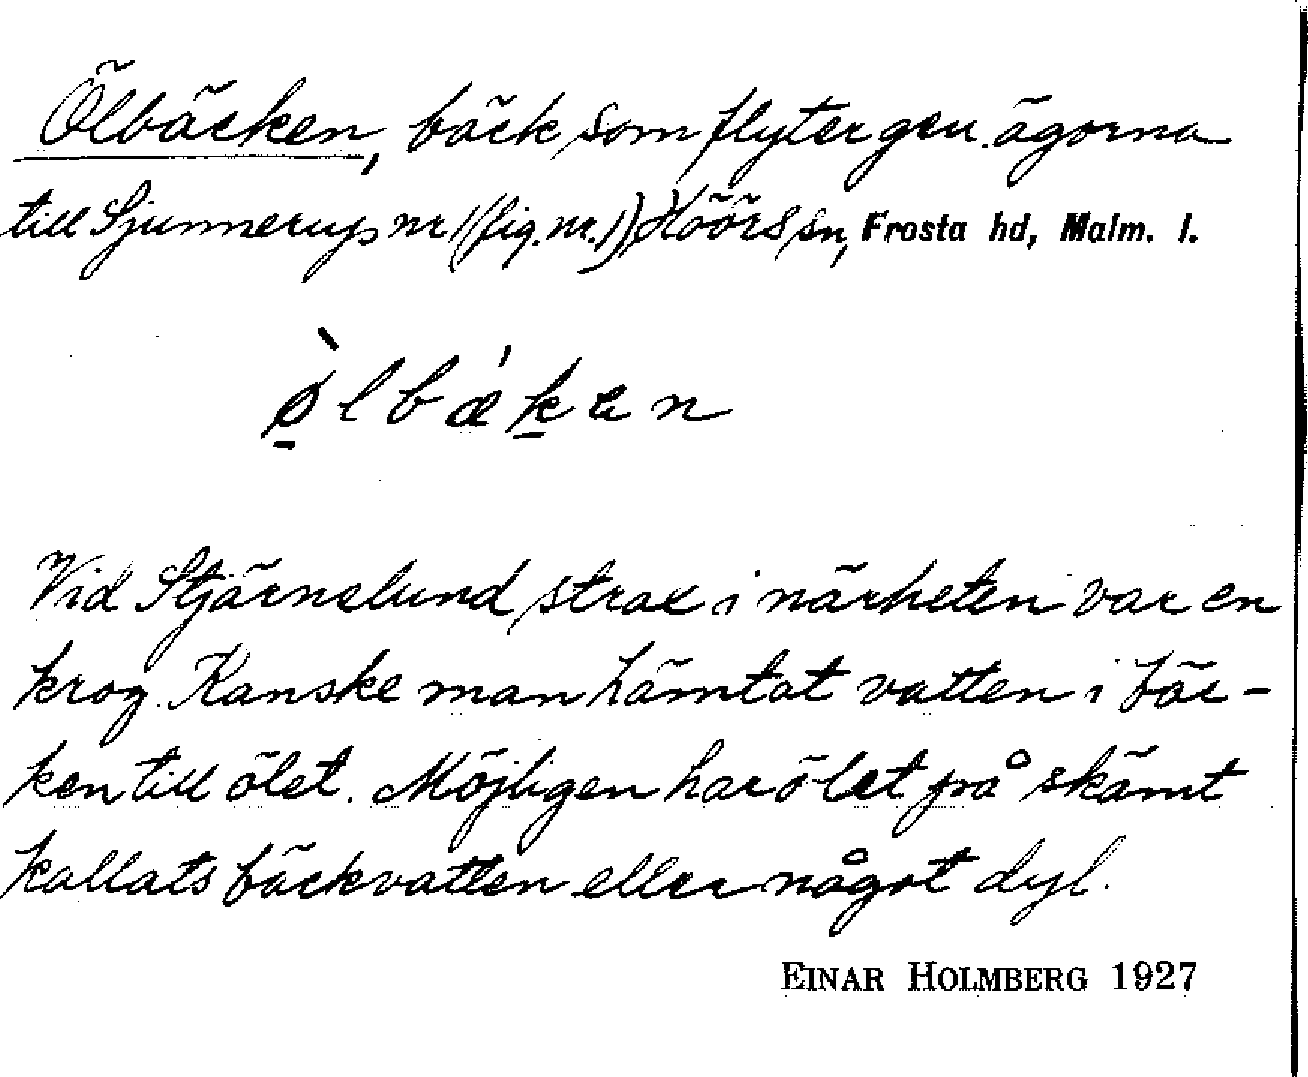 Ölbäcken, bäck som flyter gen. ägorna
till Sjunnerup nr 1 (fig. nr. 1) Höörs sn, Frosta hd, Malm. l.
ø̠̀lbǽk̠en
Vid Stjärnelund strax i närheten var en
krog. Kanske man hämtat vatten i bäc-
ken till ölet. Möjligen har ölet på skämt
kallats bäckvatten eller något dyl.
EINAR HOLMBERG 1927